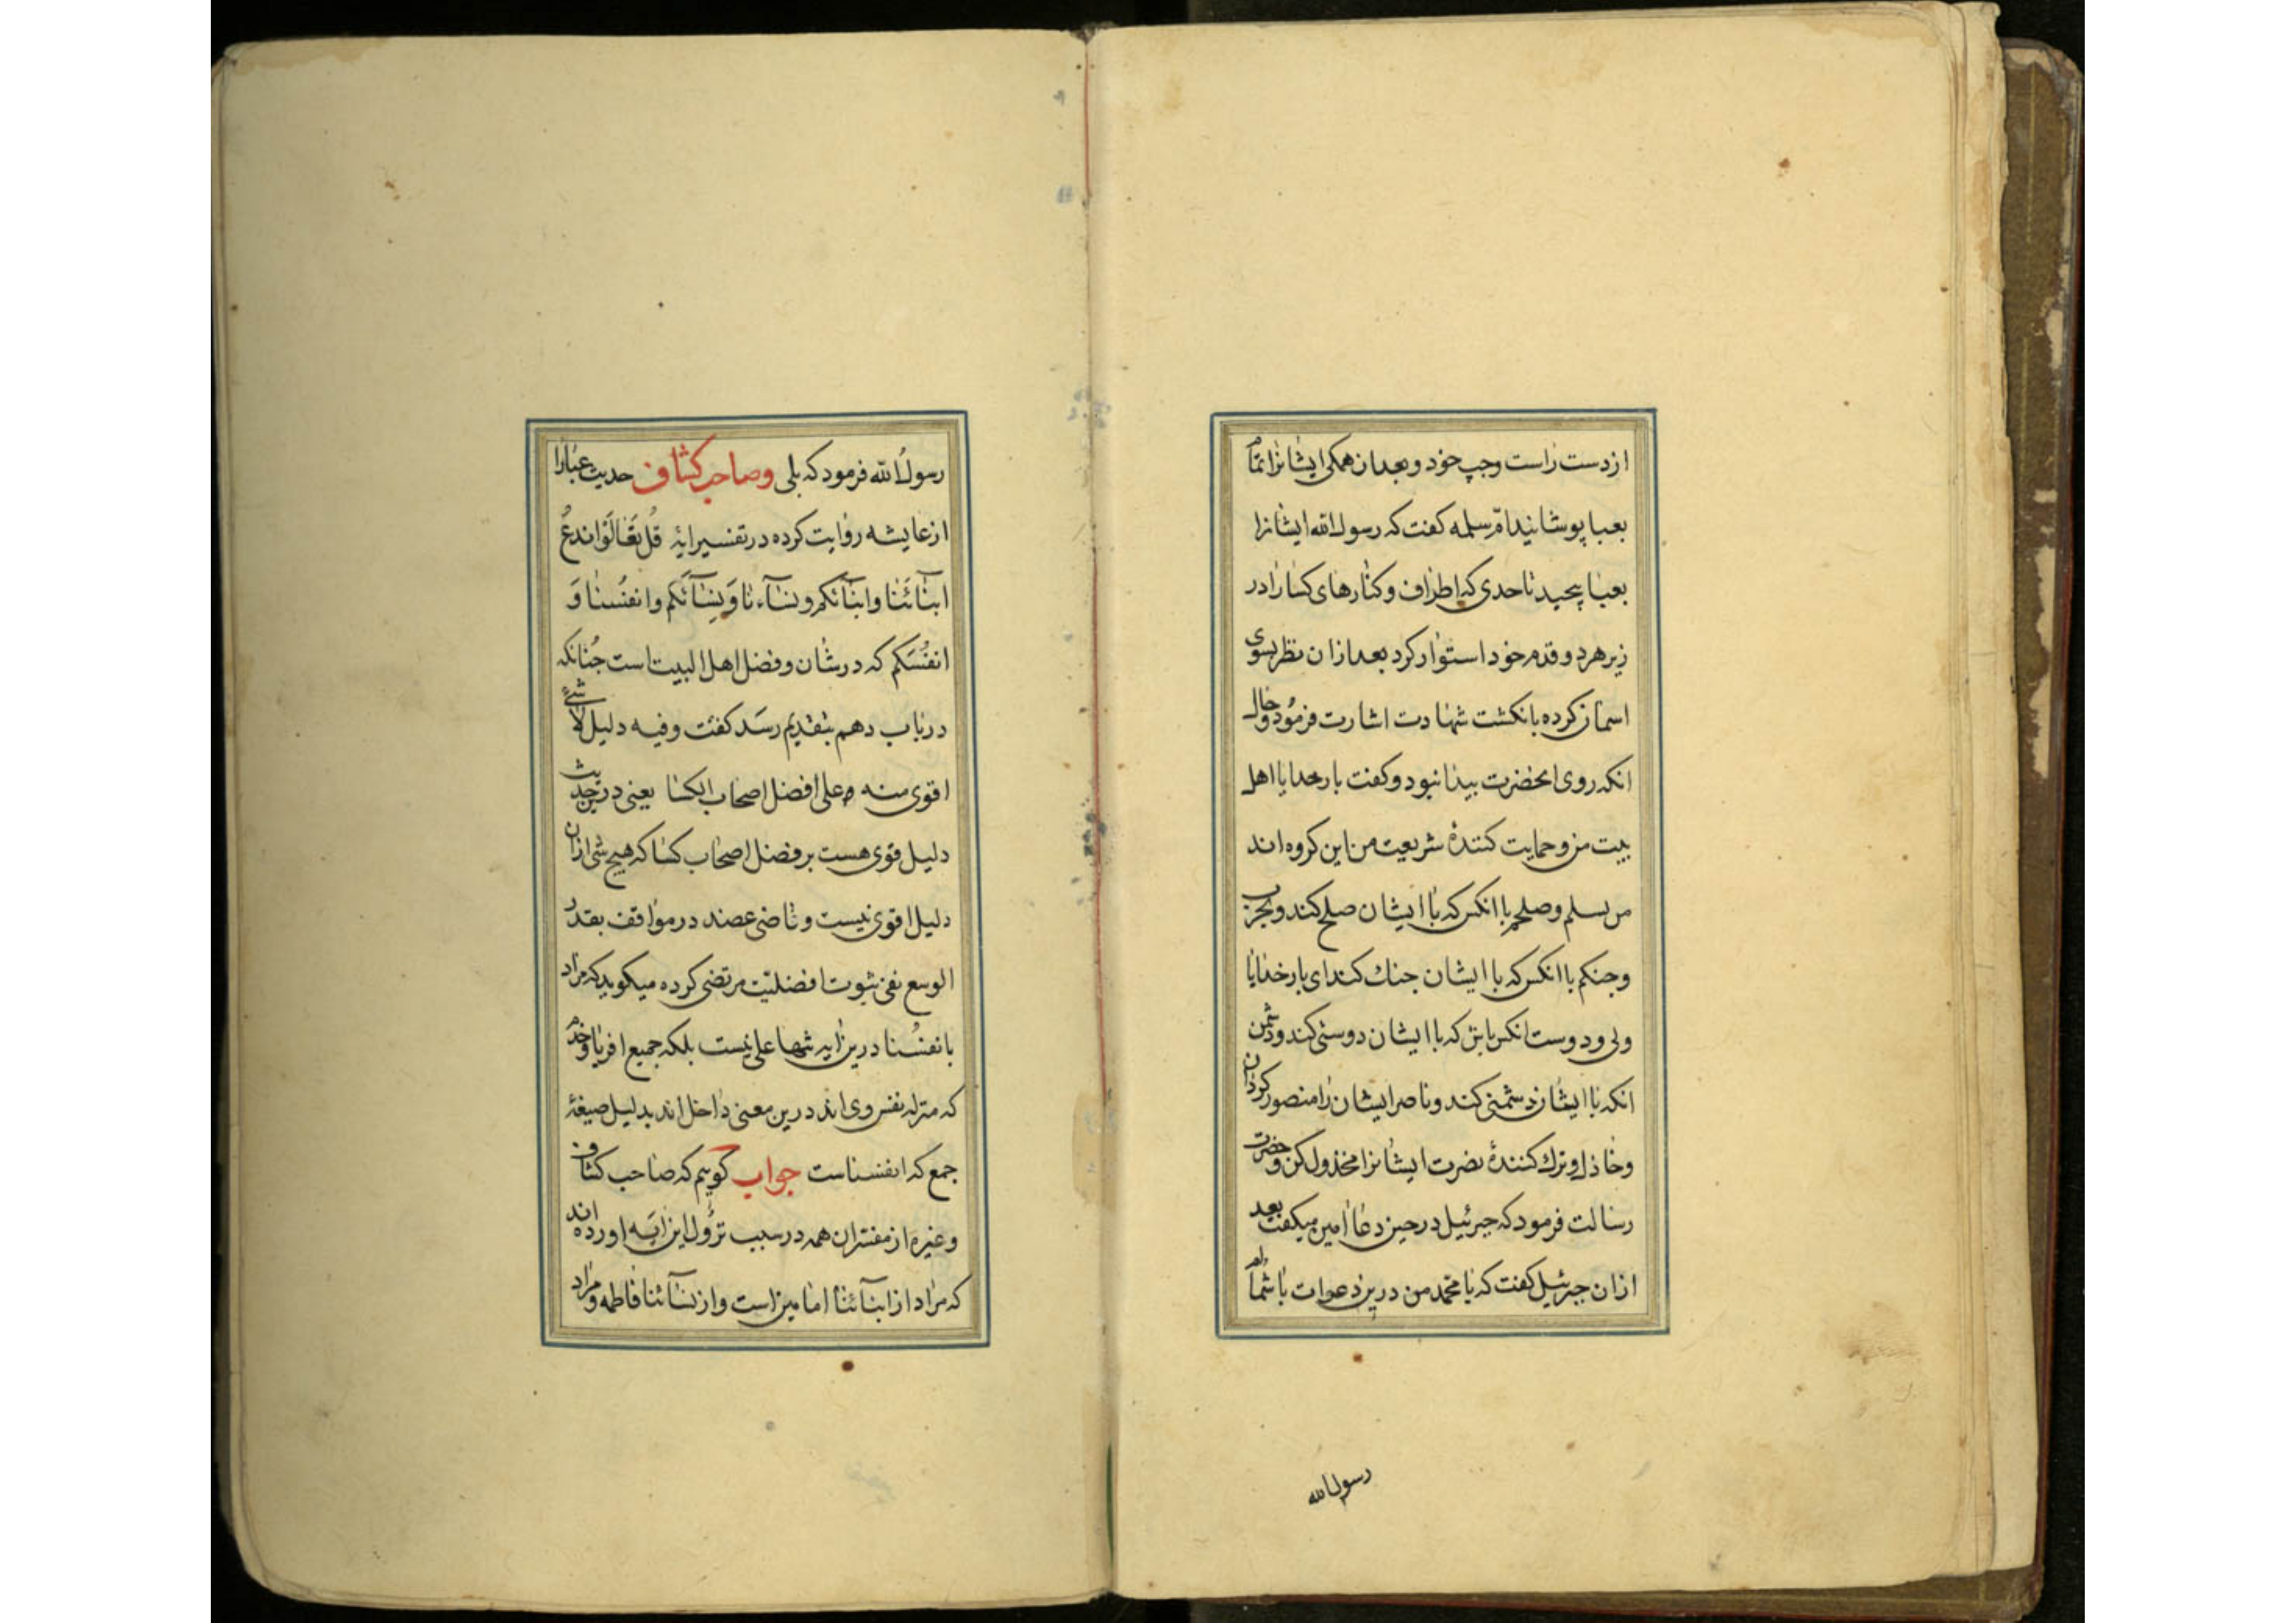 از دست راست و چپ خود و بعد ازان همکی ایشانرا تمام
بعبا پوشانید امّ سلمه کفت که رسول الله ایشانرا
بعبا پیچید تا حدی که اطراف و کنارهای کسا را در
زیر هر دو قدم خود استوار کرد بعد ازان نظر بسوی
اسمان کرده بانکشت شهادت اشارت فرمود و حال
انکه روی انحضرت بیدا نبود و کفت بار خدایا اهل
بیت من و حمایت کنندهٔ شریعت من این کروه اند
من بسلم و صلحم با انکس که با ایشان صلح کند و بحرب
و جنکم با انکس که با ایشان جنك کند ای بار خدایا
ولی و دوست انکس باش که با ایشان دوستی کند و دشمن
انکه با ایشان دشمنی کند و ناصر ایشان را منصور کردان
و خاذل و ترك کنندهٔ نصرت ایشانرا مخذول کن و حضرت
رسالت فرمود که جبرئیل در حین دعا امین میکفت بعد
ازان جبرئیل کفت که یا محمد من درین دعوات با شماام
رسول الله
رسول الله فرمود که بلی وصاحب کشاف حدیث عبارا
از عایشه روایت کرده در تفسیر ایهٔ قُل تَعَالَوا ندعُ
ابنَآئَنا وابنَآئکم ونسَآءنا وَنِسَآئَکم وانفُسنا وَ
انفُسَکم که در شان و فضل اهل البیت است چنانکه
در باب دهم بتقدیم رسَد کفت وفیه دلیل لا شئ
اقوی منه علی افضل اصحاب الکسا یعنی درین حدیث
دلیل قوی هست بر فضل اصحاب کسا که هیچ شی ازان
دلیل اقوی نیست و قاضی عضد در مواقف بقدر
الوسع نفی ثبوت افضلیّت مرتضی کرده میکوید که مراد
بانفسُنا درین ایه تنها علی نیست بلکه جمیع اقربا و خدم
که منزله نفس وی اند درین معنی داخل اند بدلیل صیغهٔ
جمع که انفسناست جواب کوییم که صاحب کشاف
و غیره از مفسّران همه در سبب نزول این ایَه اورده اند
که مراد از ابنَآئنا امامین است و از نسَآئنا فاطمه و مراد